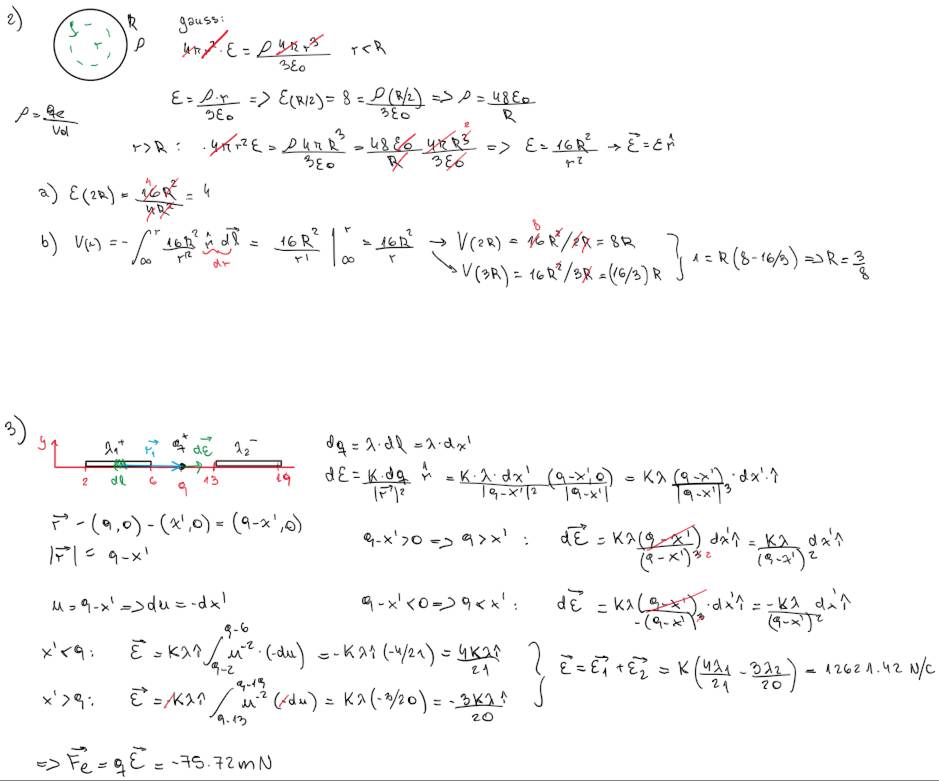 2) R
ρ r ρ
gauss:
4πr² · E = ρ 4πr³ / 3ε0   r < R
E = ρ·r / 3ε0 => E(R/2) = 8 = ρ(R/2) / 3ε0 => ρ = 48ε0 / R
ρ = qe / Vol
r > R : · 4πr²E = ρ4πR³ / 3ε0 = 48ε0 / R 4πR³ / 3ε0 => E = 16R² / r² → E⃗ = E r̂
a) E(2R) = 16R² / 4R² = 4
b) V(r) = - ∫∞^r 16R² / r'² r̂ dl⃗ = 16R² / r' |∞^r = 16R² / r → V(2R) = 16R²/2R = 8R
dr
V(3R) = 16R²/3R = (16/3) R } 1 = R (8 - 16/3) => R = 3/8
3) y λ1⁺ r⃗1 q⁺ dE⃗ λ2⁻
dl
2 6 9 13 19
dq = λ·dl = λ·dx'
dE = K·dq / |r⃗|² r̂ = K·λ·dx' / |9-x'|² (9-x', 0) / |9-x'| = Kλ (9-x') / |9-x'|³ · dx' î
r⃗ - (9,0) - (x',0) = (9-x',0)
|r⃗| = 9-x'
9-x' > 0 => 9 > x' : dE⃗ = Kλ(9-x') / (9-x')³ 2 dx' î = Kλ / (9-x')² dx' î
u = 9-x' => du = -dx'
9-x' < 0 => 9 < x' : dE⃗ = Kλ(9-x') / -(9-x')³ · dx' î = -Kλ / (9-x')² dx' î
x' < 9 : E⃗ = Kλî ∫9-2^9-6 u⁻² · (-du) = -Kλî (-4/21) = 4Kλî / 21
x' > 9 : E⃗ = -Kλî ∫9-13^9-19 u⁻² (-du) = Kλ (-3/20) = -3Kλî / 20
E⃗ = E⃗1 + E⃗2 = K (4λ1 / 21 - 3λ2 / 20) = 12621.42 N/C
=> F⃗e = qE⃗ = -75.72 mN